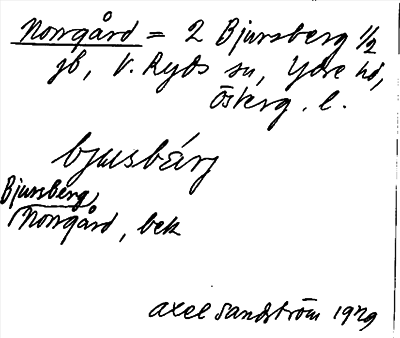 Norrgård = 2 Bjursberg 1/2
jb, V. Ryds sn, Ydre hd,
Österg. l.
bjusbärj
Bjursberg,
Norrgård, bek
Axel Sandström 1929